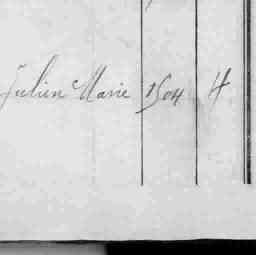 Julien Marie 1504 H